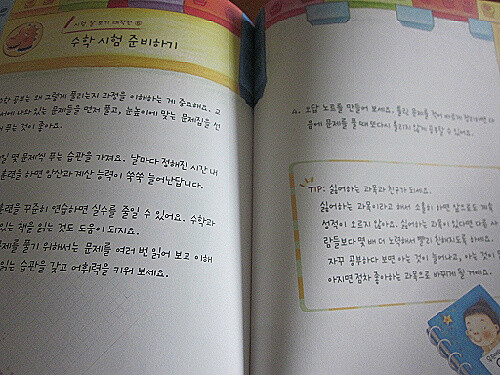 시험 잘 보기 대작전 ⑤
수학 시험 준비하기
수학 공부는 왜 그렇게 풀리는지 과정을 이해하는 게 중요해요. 교
서에 나와 있는 문제들을 먼저 풀고, 눈높이에 맞는 문제집을 선
푸는 것이 좋아요.
일 몇 문제씩 푸는 습관을 가져요. 날마다 정해진 시간 내
훈련을 하면 암산과 계산 능력이 쑥쑥 늘어난답니다.
훈련을 꾸준히 연습하면 실수를 줄일 수 있어요. 수학과
있는 책을 읽는 것도 도움이 되지요.
문제를 풀기 위해서는 문제를 여러 번 읽어 보고 이해
읽는 습관을 갖고 어휘력을 키워 보세요.
4. 오답 노트를 만들어 보세요. 틀린 문제를 적어
음에 문제를 풀 때 또다시 틀리지 않게 공부할 수 있어요.
TIP: 싫어하는 과목과 친구가 되세요.
싫어하는 과목이라고 해서 소홀히 하면 앞으로도 계속
성적이 오르지 않아요. 싫어하는 과목이 있다면 다른 사
람들보다 몇 배 더 노력해서 빨리 친해지도록 하세요.
자꾸 공부하다 보면 아는 것이 늘어나고, 아는 것이
아지면 점차 좋아하는 과목으로 바뀌게 될 거예요.